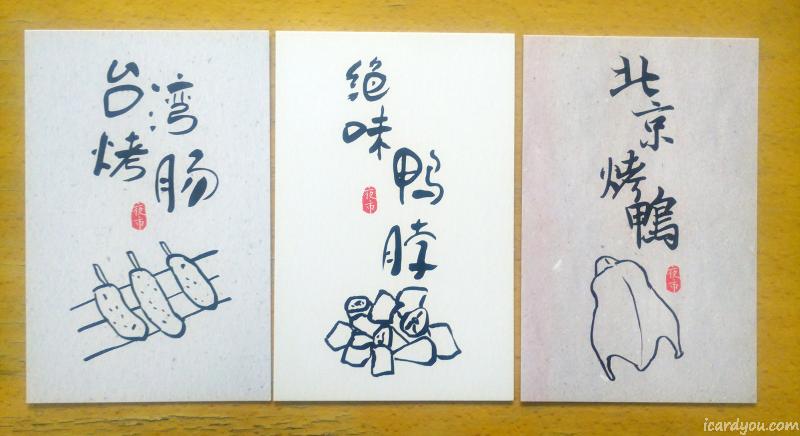 台湾
烤肠
夜市
绝味
鸭脖
夜市
北京
烤鴨
夜市
icardyou.com